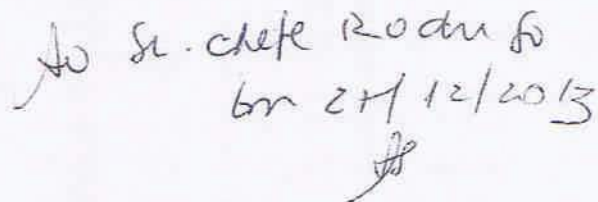 Ao Sr. chefe Rodrigo
em 27/12/2013